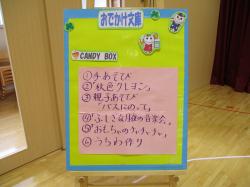 おでかけ文庫
CANDY BOX
①手あそび
②「秋色クレヨン」
③親子あそび
「バスにのって」
④「ふしぎな月夜の音楽会」
⑤「おもちゃのチャチャチャ」
⑥うちわ作り